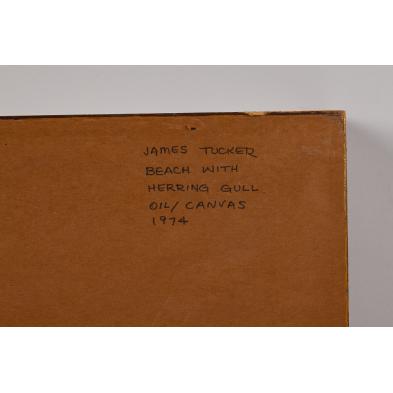 JAMES TUCKER
BEACH WITH
HERRING GULL
OIL/ CANVAS
1974